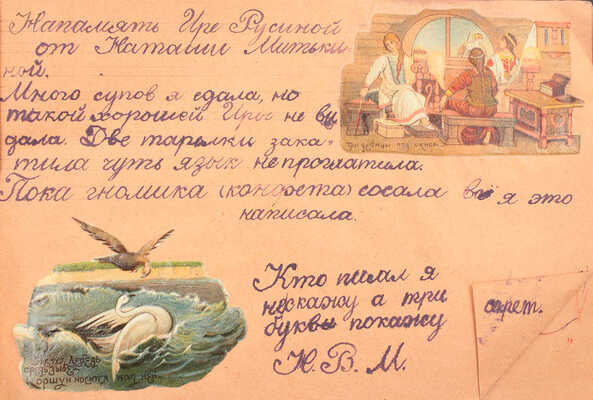 Напамять Ире Русиной
от Наташи Митьки
ной.
Много супов я едала, но
такой хорошей Иры не ви
дала. Две тарелки зака
тила чуть язык не проглатила.
Пока гномика (конфета) сосала всё я это
написала.
Три девицы под окном
Кто писал я
нескажу а три
буквы покажу
Н. В. М.
секрет.
лебедь
средь зыбей
Коршун носится над ней